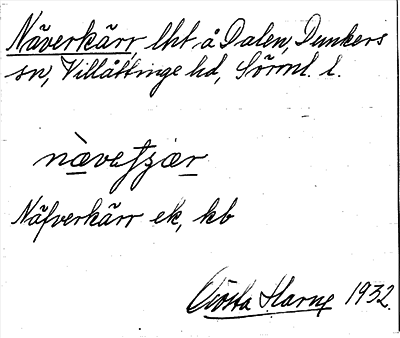 Näverkärr, lht å Dalen, Dunkers
sn, Villåttinge hd, Sörml. l.
nævefʒær
Näfverkärr ek, kb
Gösta Harne 1932.